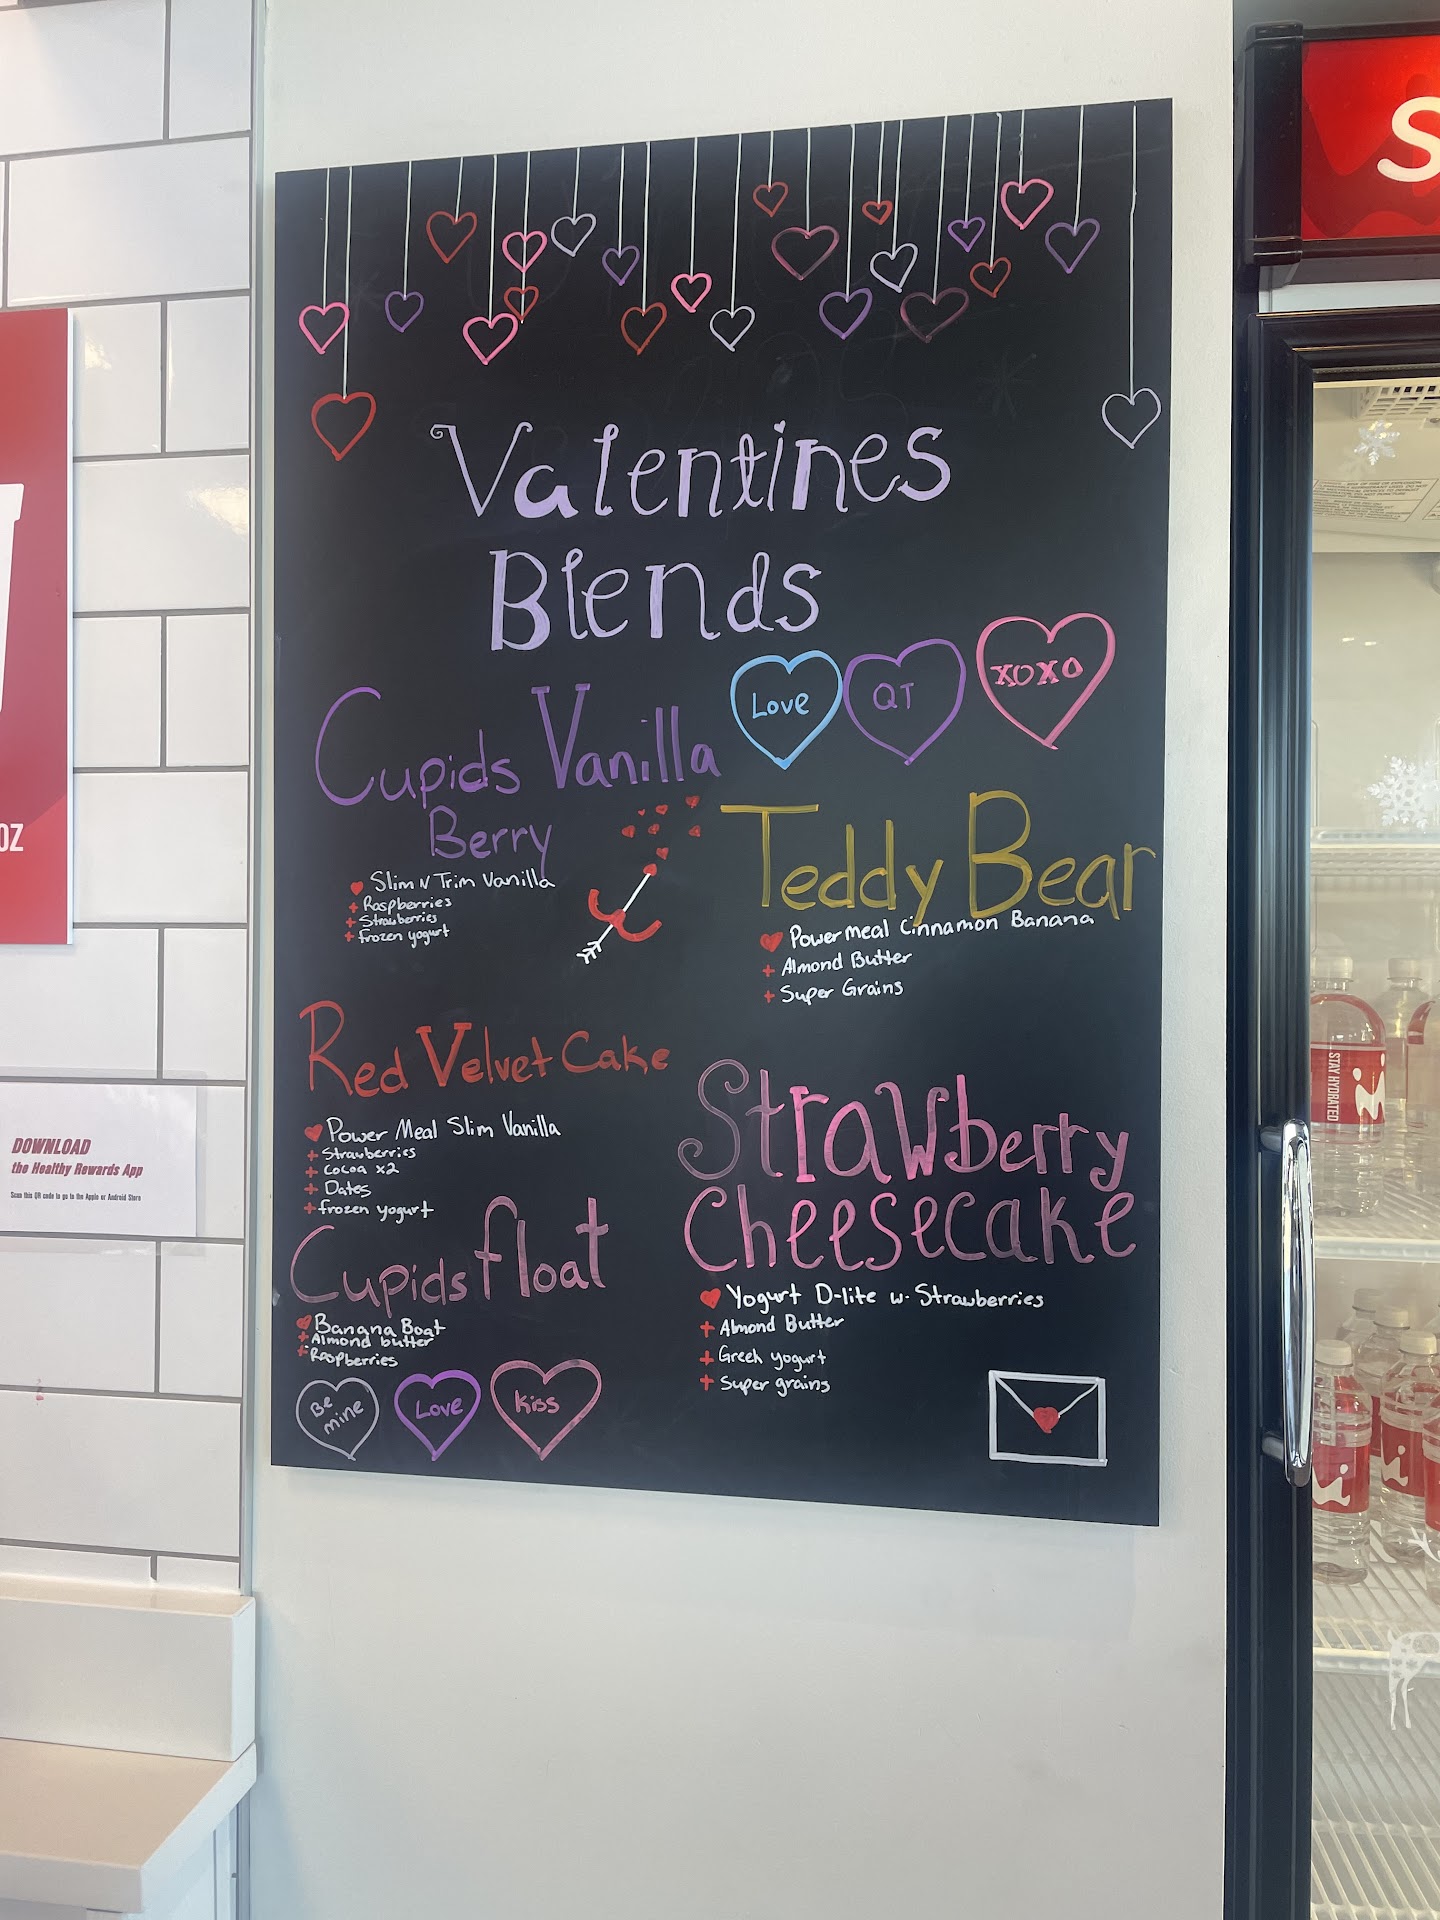 Valentines
Blends
Love
QT
XOXO
Cupids Vanilla
Berry
Slim N Trim Vanilla
+ Raspberries
+ Strawberries
+ frozen yogurt
Teddy Bear
Power meal Cinnamon Banana
+ Almond Butter
+ Super Grains
Red Velvet Cake
Power Meal Slim Vanilla
+ Strawberries
+ Cocoa x2
+ Dates
+ frozen yogurt
Cupids float
Banana Boat
+ Almond butter
+ Raspberries
Strawberry
Cheesecake
Yogurt D-lite w. Strawberries
+ Almond Butter
+ Greek yogurt
+ Super grains
Be
mine
Love
Kiss
OZ
DOWNLOAD
the Healthy Rewards App
Scan this QR code to go to the Apple or Android Store
S
STAY HYDRATED